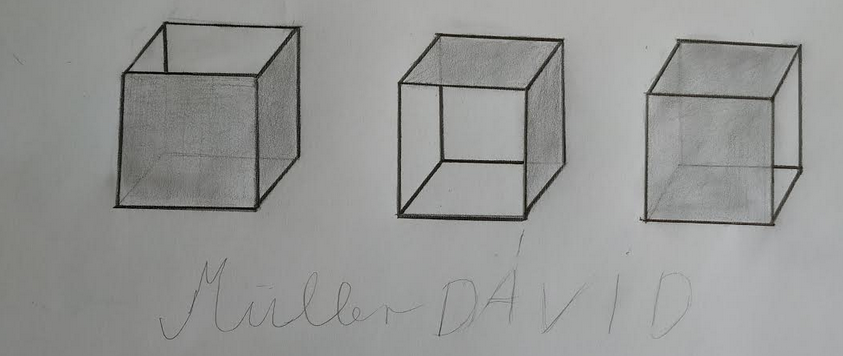 Müller DÁVID